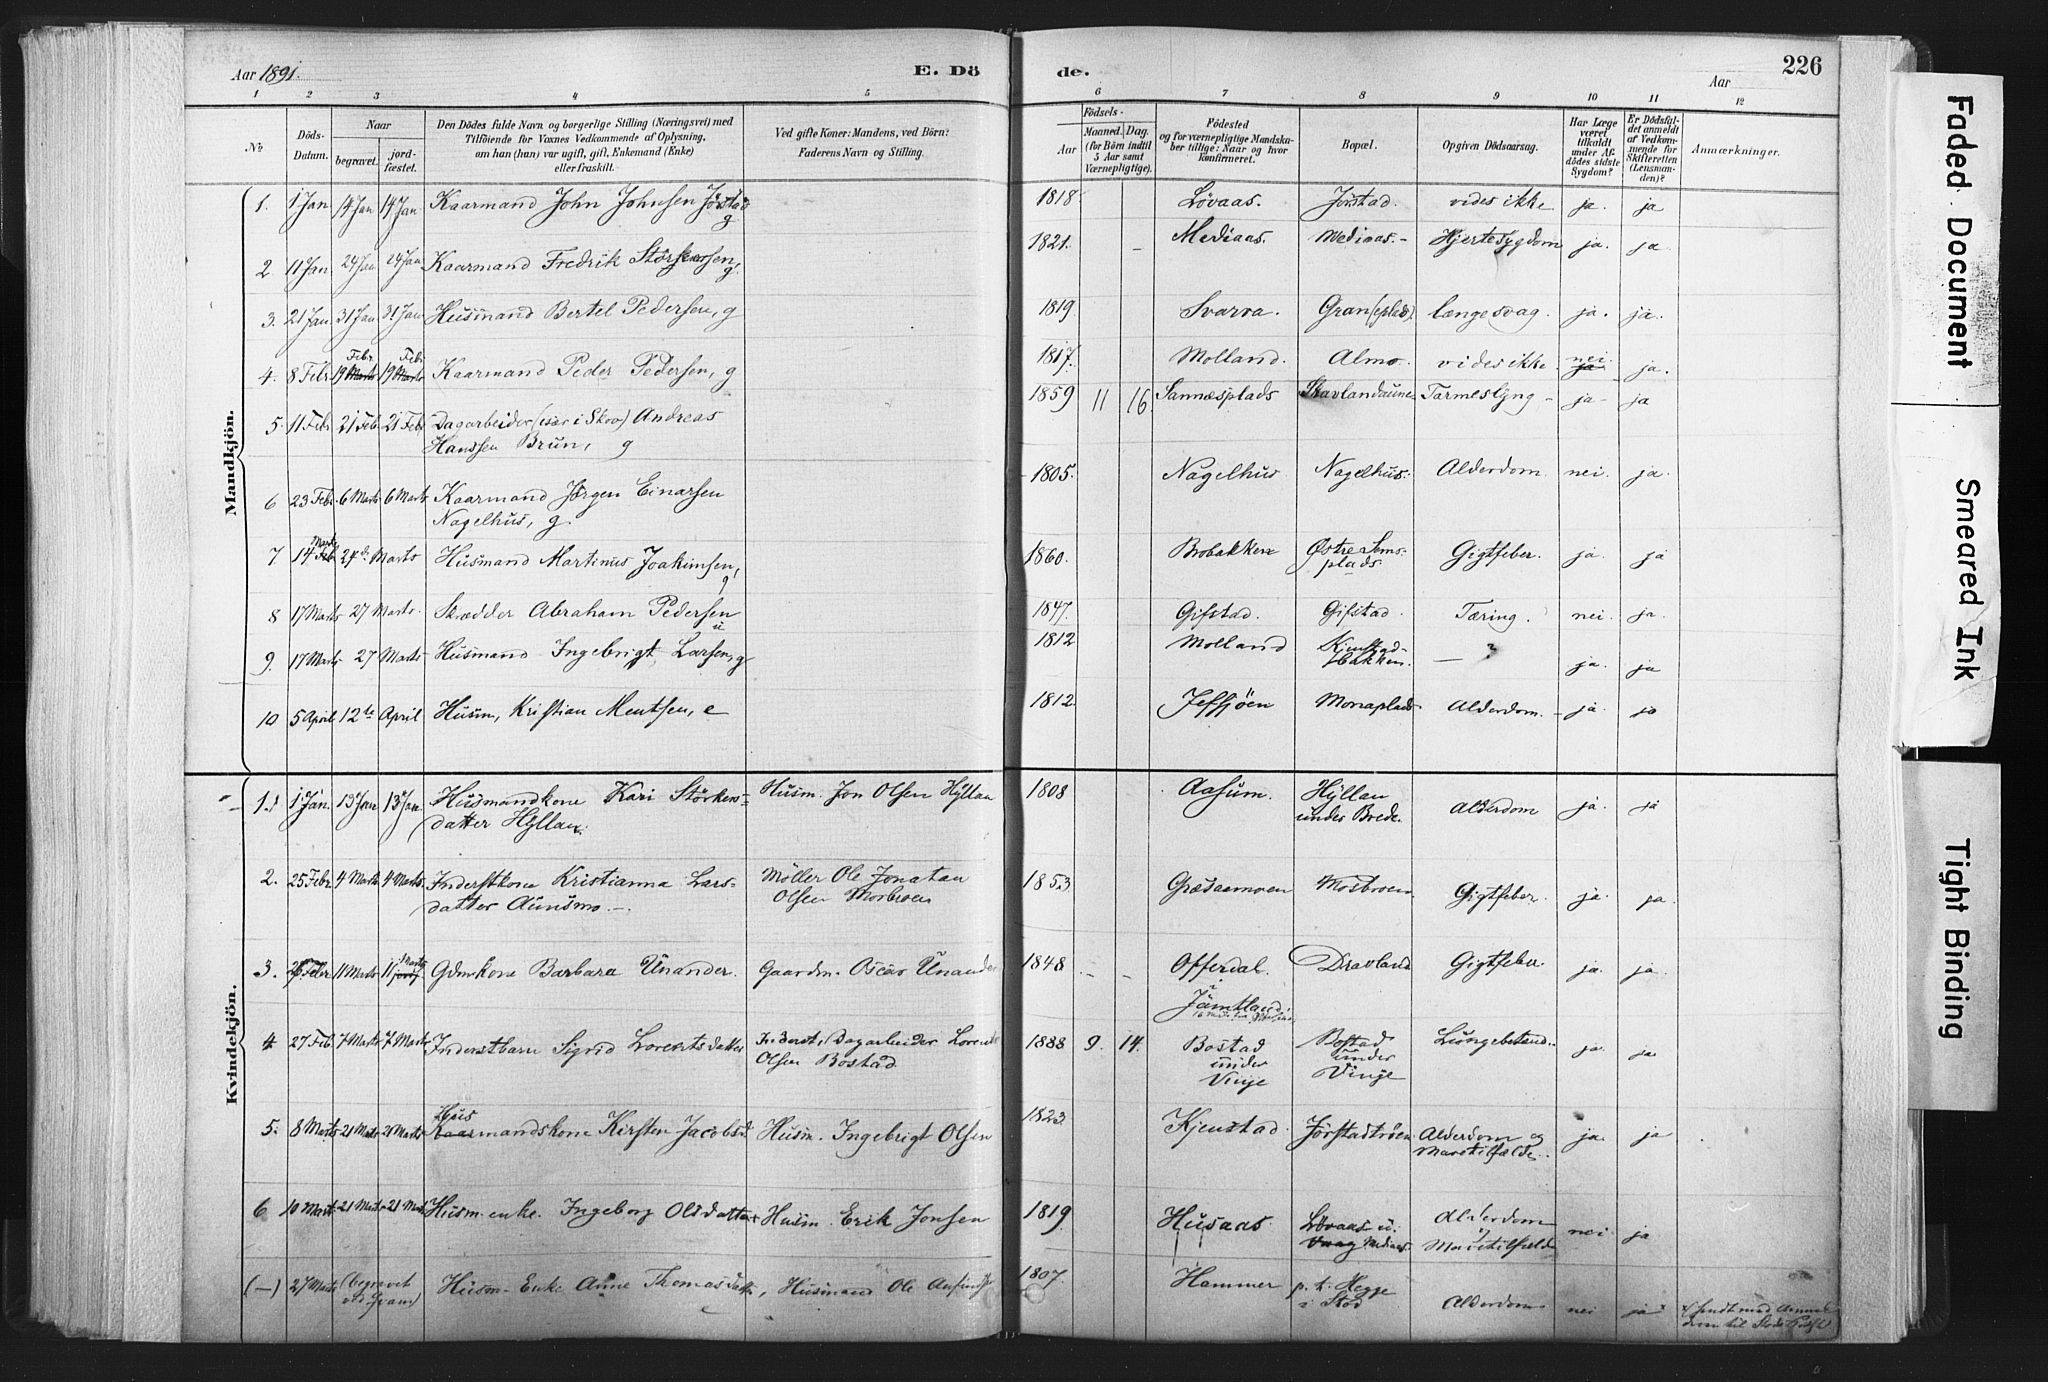 Aar 1891.
E. Dö
de.
Aar
226
1 2 3 4 5 6 7 8 9 10 11 12
No
Döds-
Datum.
Naar
begravet.
jord-
fæstet.
Den Dödes fulde Navn og borgerlige Stilling (Næringsvei) med
Tilföiende for Voxnes Vedkommende af Oplysning,
om han (hun) var ugift, gift, Enkemand (Enke)
eller fraskilt.
Ved gifte Koner: Mandens, ved Börn:
Faderens Navn og Stilling.
Födsels-
Aar
Maaned. Dag.
(for Börn indtil
5 Aar samt
Værnepligtige).
Födested
og for værnepligtige Mandska-
ber tillige: Naar og hvor
konfirmeret.
Bopæl.
Opgiven Dödsaarsag.
Har Læge
været
tilkaldt
under Af-
dödes sidste
Sygdom?
Er Dödsfal-
det anmeldt
af Vedkom-
mende for
Skifteretten
(Lensman-
den)?
Anmærkninger.
Mandkjön.
1. 1 Jan 14 Jan 14 Jan Kaarmand John Johnsen Jørstad g 1818 Løvaas. Jørstad. vides ikke ja. ja
2 11 Jan 24 Jan 24 Jan Kaarmand Fredrik Størkersen, g. 1821. - Mediaas. Mediaas. - Hjertesygdom ja. ja
3. 21 Jan 31 Jan 31 Jan Husmand Bertel Pedersen, g 1819 Svarva. Gran(eplads) længe svag. ja. ja.
Febr. Febr.
4. 8 Febr 19 Marts 19 Marts Kaarmand Peder Pedersen, g 1817. Molland. Almo. vides ikke. nei ja ja.
5. 11 Febr 21 Feb 21 Feb Dagarbeider (især i Skov) Andreas
Hanssen Brun, g 1859 11 16. Sannæsplads Skavlandaunet Tarmeslyng - ja - ja
6 23 Febr. 6 Marts 6 Marts Kaarmand Jørgen Einarsen
Nagelhus, g. 1805. Nagelhus Nagelhus. Alderdom. nei. ja.
Marts
7. 14 Feb 24de Marts Husmand Martinus Joakimsen, g 1860. Brobakken Østre Sems-
plads. Gigtfeber. ja. ja
8 17 Marts 27 Marts. Skrædder Abraham Pedersen u 1847. Gifstad. Gifstad. Tæring. nei. ja.
9. 17 Marts 27 Marts Husmand Ingebrigt Larsen, g 1812 Molland Kjenstad-
bakken. — ? ja. ja
10 5 April 12te April Husm, Kristian Mentsen, e 1812. Monaplads Alderdom. - ja. ja
Kvindekjön.
1. 1 Jan 13 Jan 13 Jan Husmandkone Kari Størkers-
datter Hyllan. Husm. Jon Olsen Hyllan 1808 Aasum. Hyllan
under Brede. Alderdom ja. ja
2. 25 Febr 4 Marts 4 Marts. Inderstkone Kristianna Lars-
datter Aunsmo. Møller Ole Jonatan
Olsen Mosbroen 1853 Græsaamoen Mosbroen Gigtfeber. ja. ja.
3. 26 Febr 11 Marts 11 Marts Gdmkone Barbara Unander. Gaardm. Oscar Unander 1848 - - Offerdal.
i
Jämtland, Dravland Gigtfeber ja. ja.
4. 27 Feb 7 Marts 7 Marts Inderstbarn Sigrid Lorentsdatter Inderst, Dagarbeider Lorents
Olsen Bostad 1888 9. 14. Bostad
under
Vinje Bostad
under
Vinje Lungebetænd. ja. ja
Hus
5. 8 Marts 21 Marts 21 Marts Kaarmandskone Kirsten Jacobsd. Husm. Ingebrigt Olsen 1823. Kjenstad. Jørstadtrøen Alderdom og
Mavetilfælde. ja. ja
6 10 Mart 21 Marts 21 Marts Husm. enke. Ingeborg Olsdatter Husm. Erik Jonsen 1819. Husaas. Løvaas u.
Vaag Mediaas. Alderdom
Mavetilfælde nei. ja
(—) 27 Marts (begravet
ved Kvam) Husm- Enke Anne Thomasdatter, e Husmand Ole 1807. Hammer p. t. Hegge
i Stod Alderdom nei ja x x/ sendt med
til Stods
Faded Document
Smeared Ink
Tight Binding